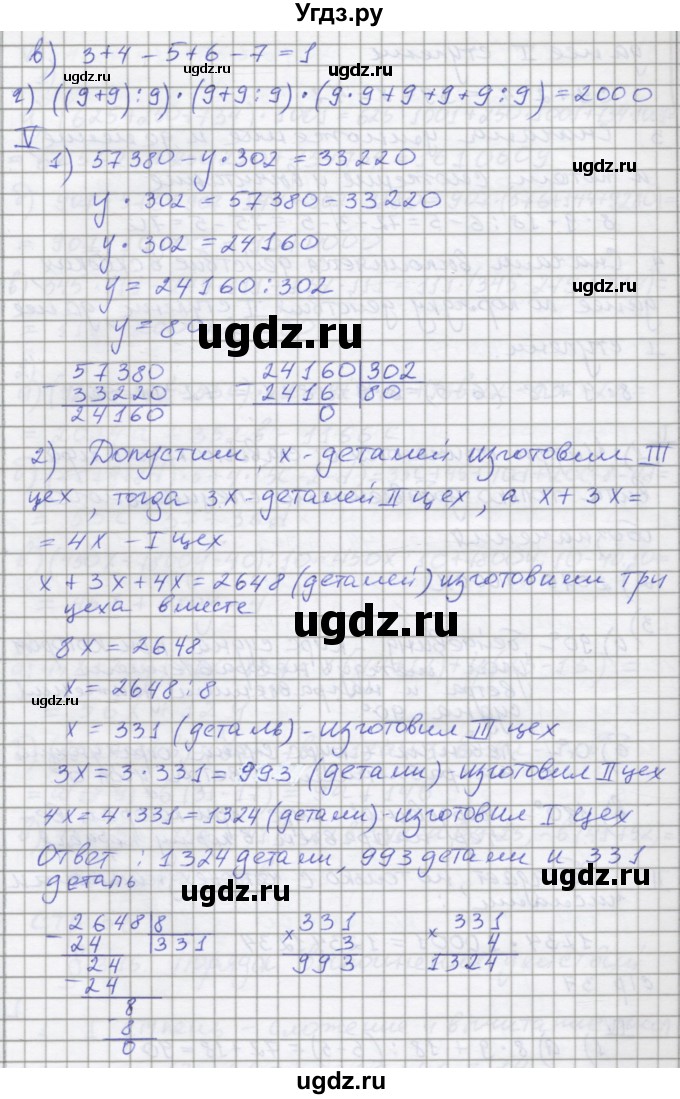 Угдз.ру
в) 3+4-5+6-7=1
г) ((9+9):9)·(9+9:9)·(9·9+9+9+9:9)=2000
V
1) 57380-y·302=33220
y·302=57380-33220
y·302=24160
y=24160:302
y=80
57380 24160 302
- 33220 - 2416 80
24160 0
2) Допустим, x-деталей изготовил III
цех, тогда 3x-деталей II цех, а x+3x=
=4x - I цех
x+3x+4x=2648 (деталей) изготовили три
цеха вместе
8x=2648
x=2648:8
x=331 (деталь)-изготовил III цех
3x=3·331=993 (детали)-изготовил II цех
4x=4·331=1324 (детали)-изготовил I цех
Ответ: 1324 детали, 993 детали и 331
деталь
2648 8 331 331
- 24 331 × 3 × 4
24 993 1324
- 24
8
- 8
0
ugdz.ru
ugdz.ru
ugdz.ru
ugdz.ru
ugdz.ru
ugdz.ru
ugdz.ru
ugdz.ru
ugdz.ru
ugdz.ru
ugdz.ru
ugdz.ru
ugdz.ru
ugdz.ru